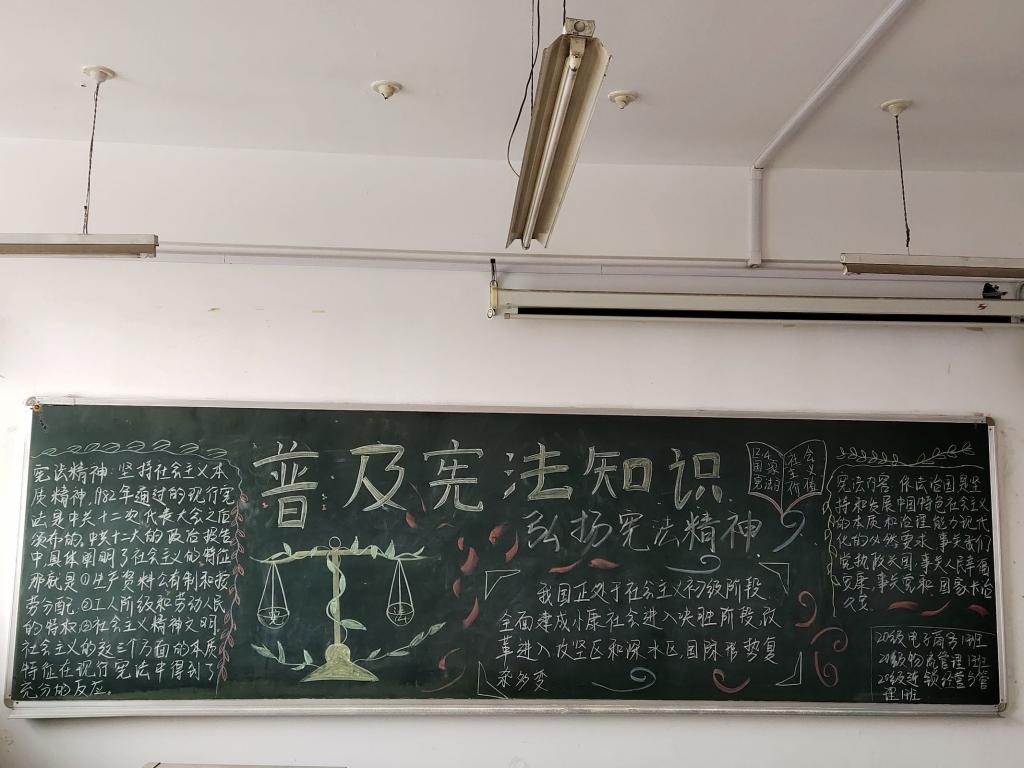 普及宪法知识
弘扬宪法精神
宪法精神:坚持社会主义本
质精神,1982年通过的现行宪
法是中共十二次代表大会之后
颁布的,中共十二大的政治报告
中具体阐明了社会主义的特征
那就是①生产资料公有制和按
劳分配.②工人阶级和劳动人民
的特权③社会主义精神文明.
社会主义的这三个方面的本质
特征在现行宪法中得到了
充分的反应。
宪
法
我国正处于社会主义初级阶段
全面建成小康社会进入决胜阶段,改
革进入攻坚区和深水区,国际形势复
杂多变
12.4
国家
宪法日
宪法内容 依法治国是坚
持和发展中国特色社会主义
的本质和治理能力现代
化的必然要求,事关我们
党执政兴国,事关人民幸福
安康,事关党和国家长治
久安.
20级电子商务1班
20级物流管理1班
20级连锁经营与管
理1班